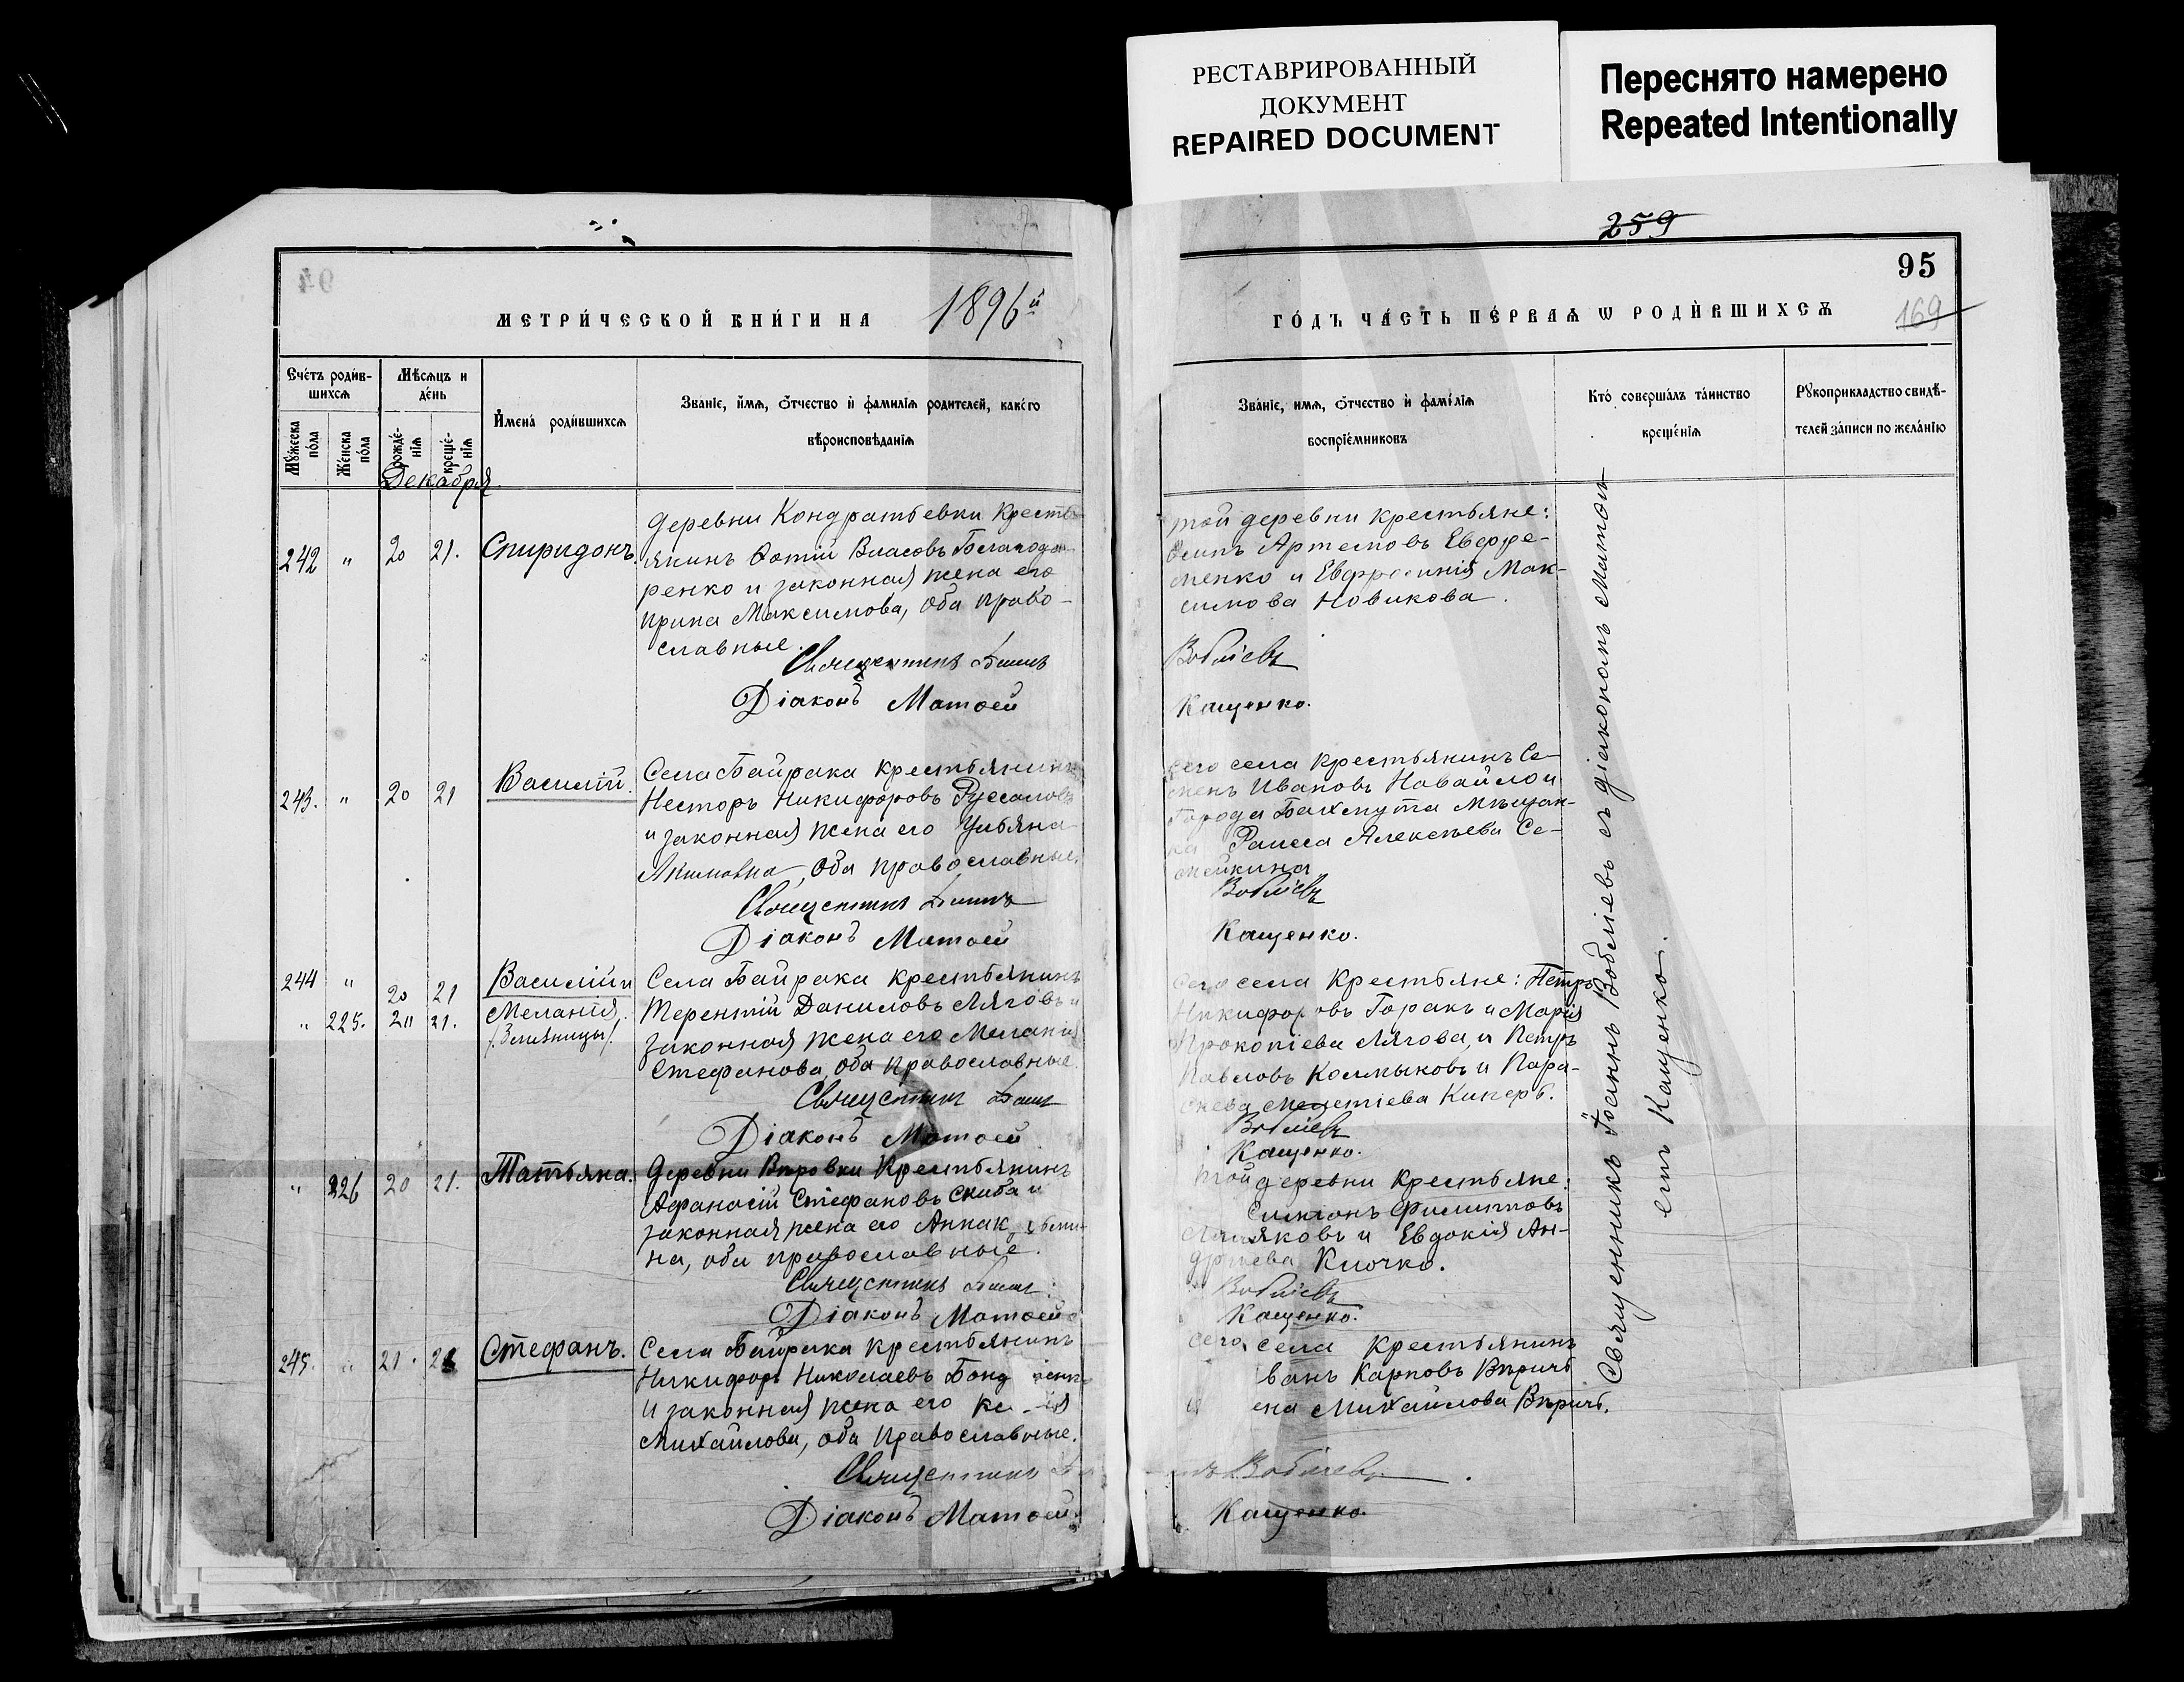 РЕСТАВРИРОВАННЫЙ
ДОКУМЕНТ
REPAIRED DOCUMENT
Переснято намерено
Repeated Intentionally
259
94
95
169
МЕТРИ́ЧЕСКОЙ КНИ́ГИ НА 1896й
ГО́ДЪ ЧА́СТЬ ПЕ́РВАѦ Ѡ РОДИ́ВШИХСѦ
Сче́тъ роди́в-
шихсѧ
Мѣсѧцъ и
де́нь
Мꙋ́жеска
по́ла
Же́нска
по́ла
рожде́-
нїѧ
креще́-
нїѧ
И҆мена̀ роди́вшихсѧ
Зва́нїе, и҆́мѧ, ѻ҆́тчество и҆ фами́лїѧ родителей, како́го
вѣроисповѣданїѧ
Зва́нїе, имѧ, ѻ҆́тчество и҆ фамі́лїѧ
воспрїе́мниковъ
Кто́ соверша́лъ та́инство
креще́нїѧ
Рꙋкоприкладство свидѣ-
телей за́писи по жела́нїю
Декабря
242 " 20 21. Спиридонъ.
деревни Кондратьевки Кресть-
янинъ Фотій Власовъ
ренко и законная жена его
Ирина Максимова, оба право-
славные.
Священникъ
Діаконъ Матѳей
той деревни крестьяне:
Артемовъ Евфре-
менко и Евфросинія Мак-
симова Новикова.
Воблíевъ
Кащенко.
243. " 20 21 Василій.
Села Байрака крестьянинъ
Несторъ Никифоровъ Русаловъ
и законная жена его Ульяна
Акимовна, оба православные.
Священникъ
Діаконъ Матѳей
сего села крестьянинъ Се-
менъ Ивановъ Навайло и
города Бахмута мѣщан-
ка Раиса Алексѣева Се-
мейкина
Воблíевъ
Кащенко.
244 " 20 21 Василій и
" 225. 20 21. Меланія.
/Близницы/.
Села Байрака крестьянинъ
Терентій Даниловъ Ляговъ и
законная жена его Меланія
Стефанова, оба православные.
Священникъ
Діаконъ Матѳей
сего села Крестьяне: Петръ
Никифоровъ Горакъ и Марія
Прокопіева Лягова, и Петръ
Павловъ Колмыковъ и Пара-
скева
Воблíевъ
Кащенко.
" 226 20 21. Татьяна.
Деревни Вѣровки Крестьянинъ
Афанасій Стефановъ Скиба и
законная жена его Анна
на, оба православные.
Священникъ
Діаконъ Матѳей
той деревни Крестьяне:
Симеонъ Филипповъ
и Евдокія Ан-
дреева Клочко.
Воблíевъ
Кащенко.
245. " 21. Стефанъ.
Села Байрака крестьянинъ
Никифоръ Николаевъ
и законная жена его
Михайлова, оба Православные.
Священникъ
Діаконъ Матѳей
сего села Крестьянинъ
Карповъ Вѣричъ
и Михайлова Вѣричъ.
Воблíевъ
Кащенко.
Священникъ Іоаннъ Воблíевъ съ діакономъ Матѳ
емъ Кащенко.